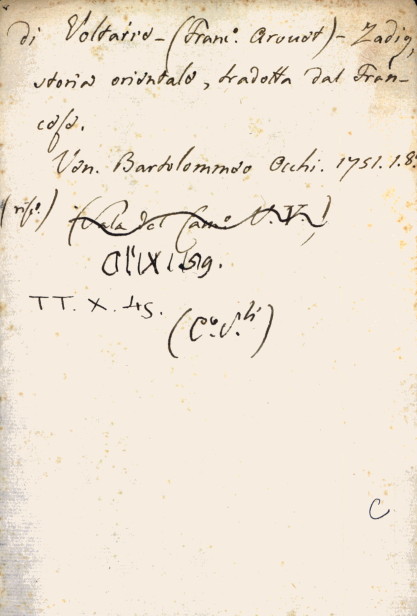 di Voltaire - (Franc.º Arouet) - Zadig,
storia orientale, tradotta dal Fran-
cese.
Ven. Bartolommeo Occhi. 1751. 1. 8º
(Sala del Cam.º V.)
TT. X. 45.
C